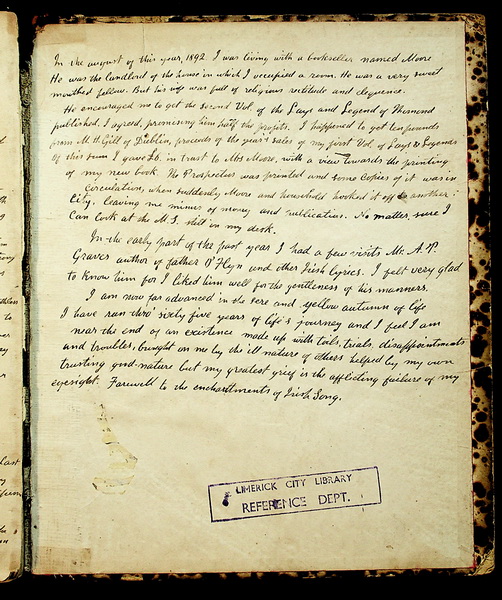 In the august of this year, 1892 I was living with a bookseller named Moore
He was the landlord of the house in which I occupied a room. He was a very sweet
mouthed fellow. But his wife was full of religious rectitude and eloquence.
He encouraged me to get the second Vol of the Lays and Legend of Thomond
published, I agreed, promising him half the profits. I happened to get ten pounds
from M. H. Gill of Dublin, proceeds of the year's sales of my first Vol. of Lays & Legends
Of this sum I gave £6. in trust to Mrs Moore, with a view towards the printing
of my new book. The Prospectus was printed and some Copies of it was in
Circulation, when suddenly Moore and household hooked it off to another
City, leaving me minus of money and publication. No matter, sure I
Can look at the M.S. still on my desk.
In the early part of the past year I had a few visits Mr. A. P.
Graves author of father O'Flyn and other Irish lyrics. I felt very glad
to know him for I liked him well for the gentleness of his manners.
I am now far advanced in the sere and yellow autumn of life
I have run thro' sixty five years of life's journey and I feel I am
near the end of an existence made up with toils, trials, disappointments
and troubles, brought on me by the ill nature of others helped by my own
trusting good-nature but my greatest grief is the afflicting failure of my
eyesight. Farewell to the enchantments of Irish Song.
LIMERICK CITY LIBRARY
REFERENCE DEPT.
Last